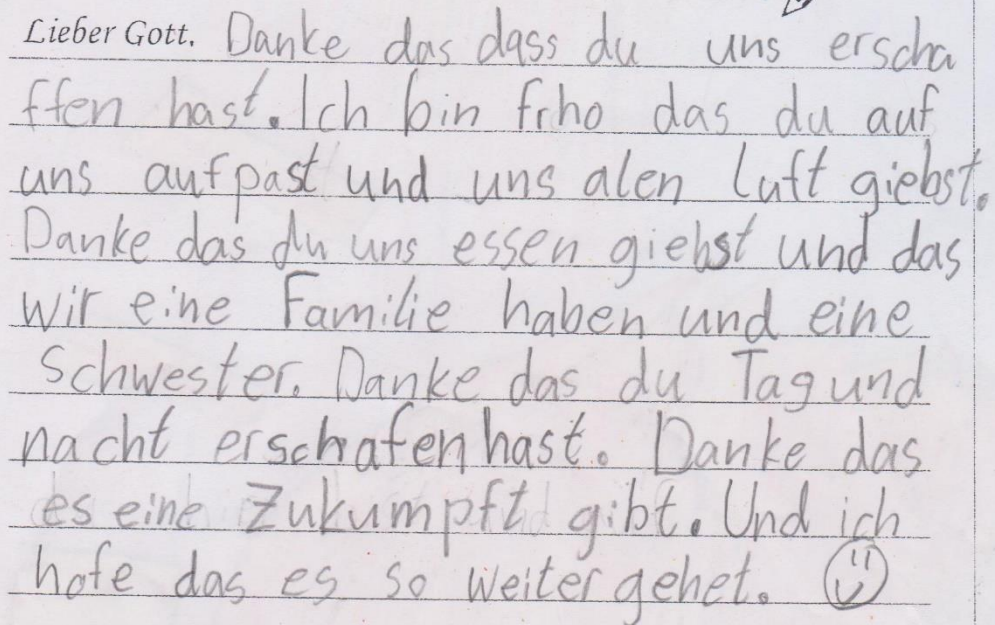 Lieber Gott, Danke das dass du uns erscha
ffen hast. Ich bin frho das du auf
uns aufpast und uns alen Luft giebst.
Danke das du uns essen giebst und das
wir eine Familie haben und eine
Schwester. Danke das du Tag und
nacht erschafen hast. Danke das
es eine Zukumpft gibt. Und ich
hofe das es so weiter gehet.